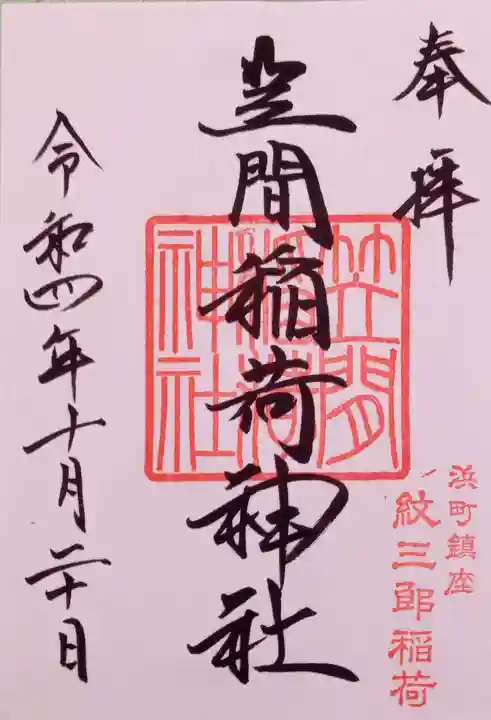 奉拝
浜町鎮座
紋三郎稲荷
笠間稲荷神社
笠間稲荷神社
令和四年十月二十日